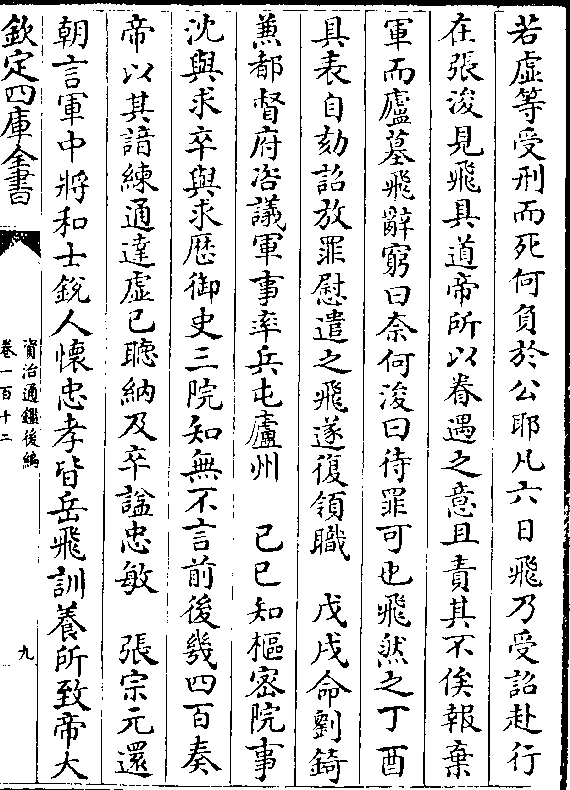 若虛等受刑而死何負於公耶凡六日飛乃受詔赴行
在張浚見飛具道帝所以眷遇之意且責其不俟報棄
軍而廬墓飛辭窮曰奈何浚曰待罪可也飛然之丁酉
具表自劾詔放罪慰遣之飛遂復領職　戊戌命劉錡
兼都督府咨議軍事率兵屯廬州　己巳知樞密院事
沈與求卒與求歴御史三院知無不言前後幾四百奏
帝以其諳練通達虛已聽納及卒諡忠敏　張宗元還
朝言軍中將和士銳人懷忠孝皆岳飛訓養所致帝大
欽定四庫全書
資治通鑑後編
卷一百十二
九